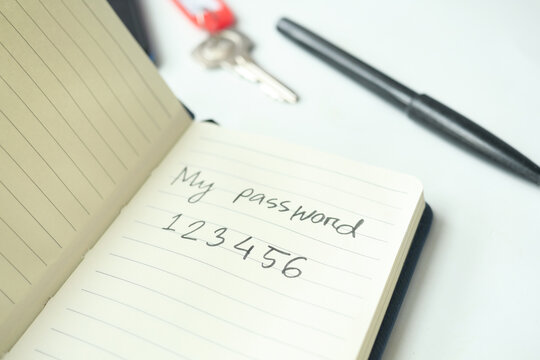 My password
123456